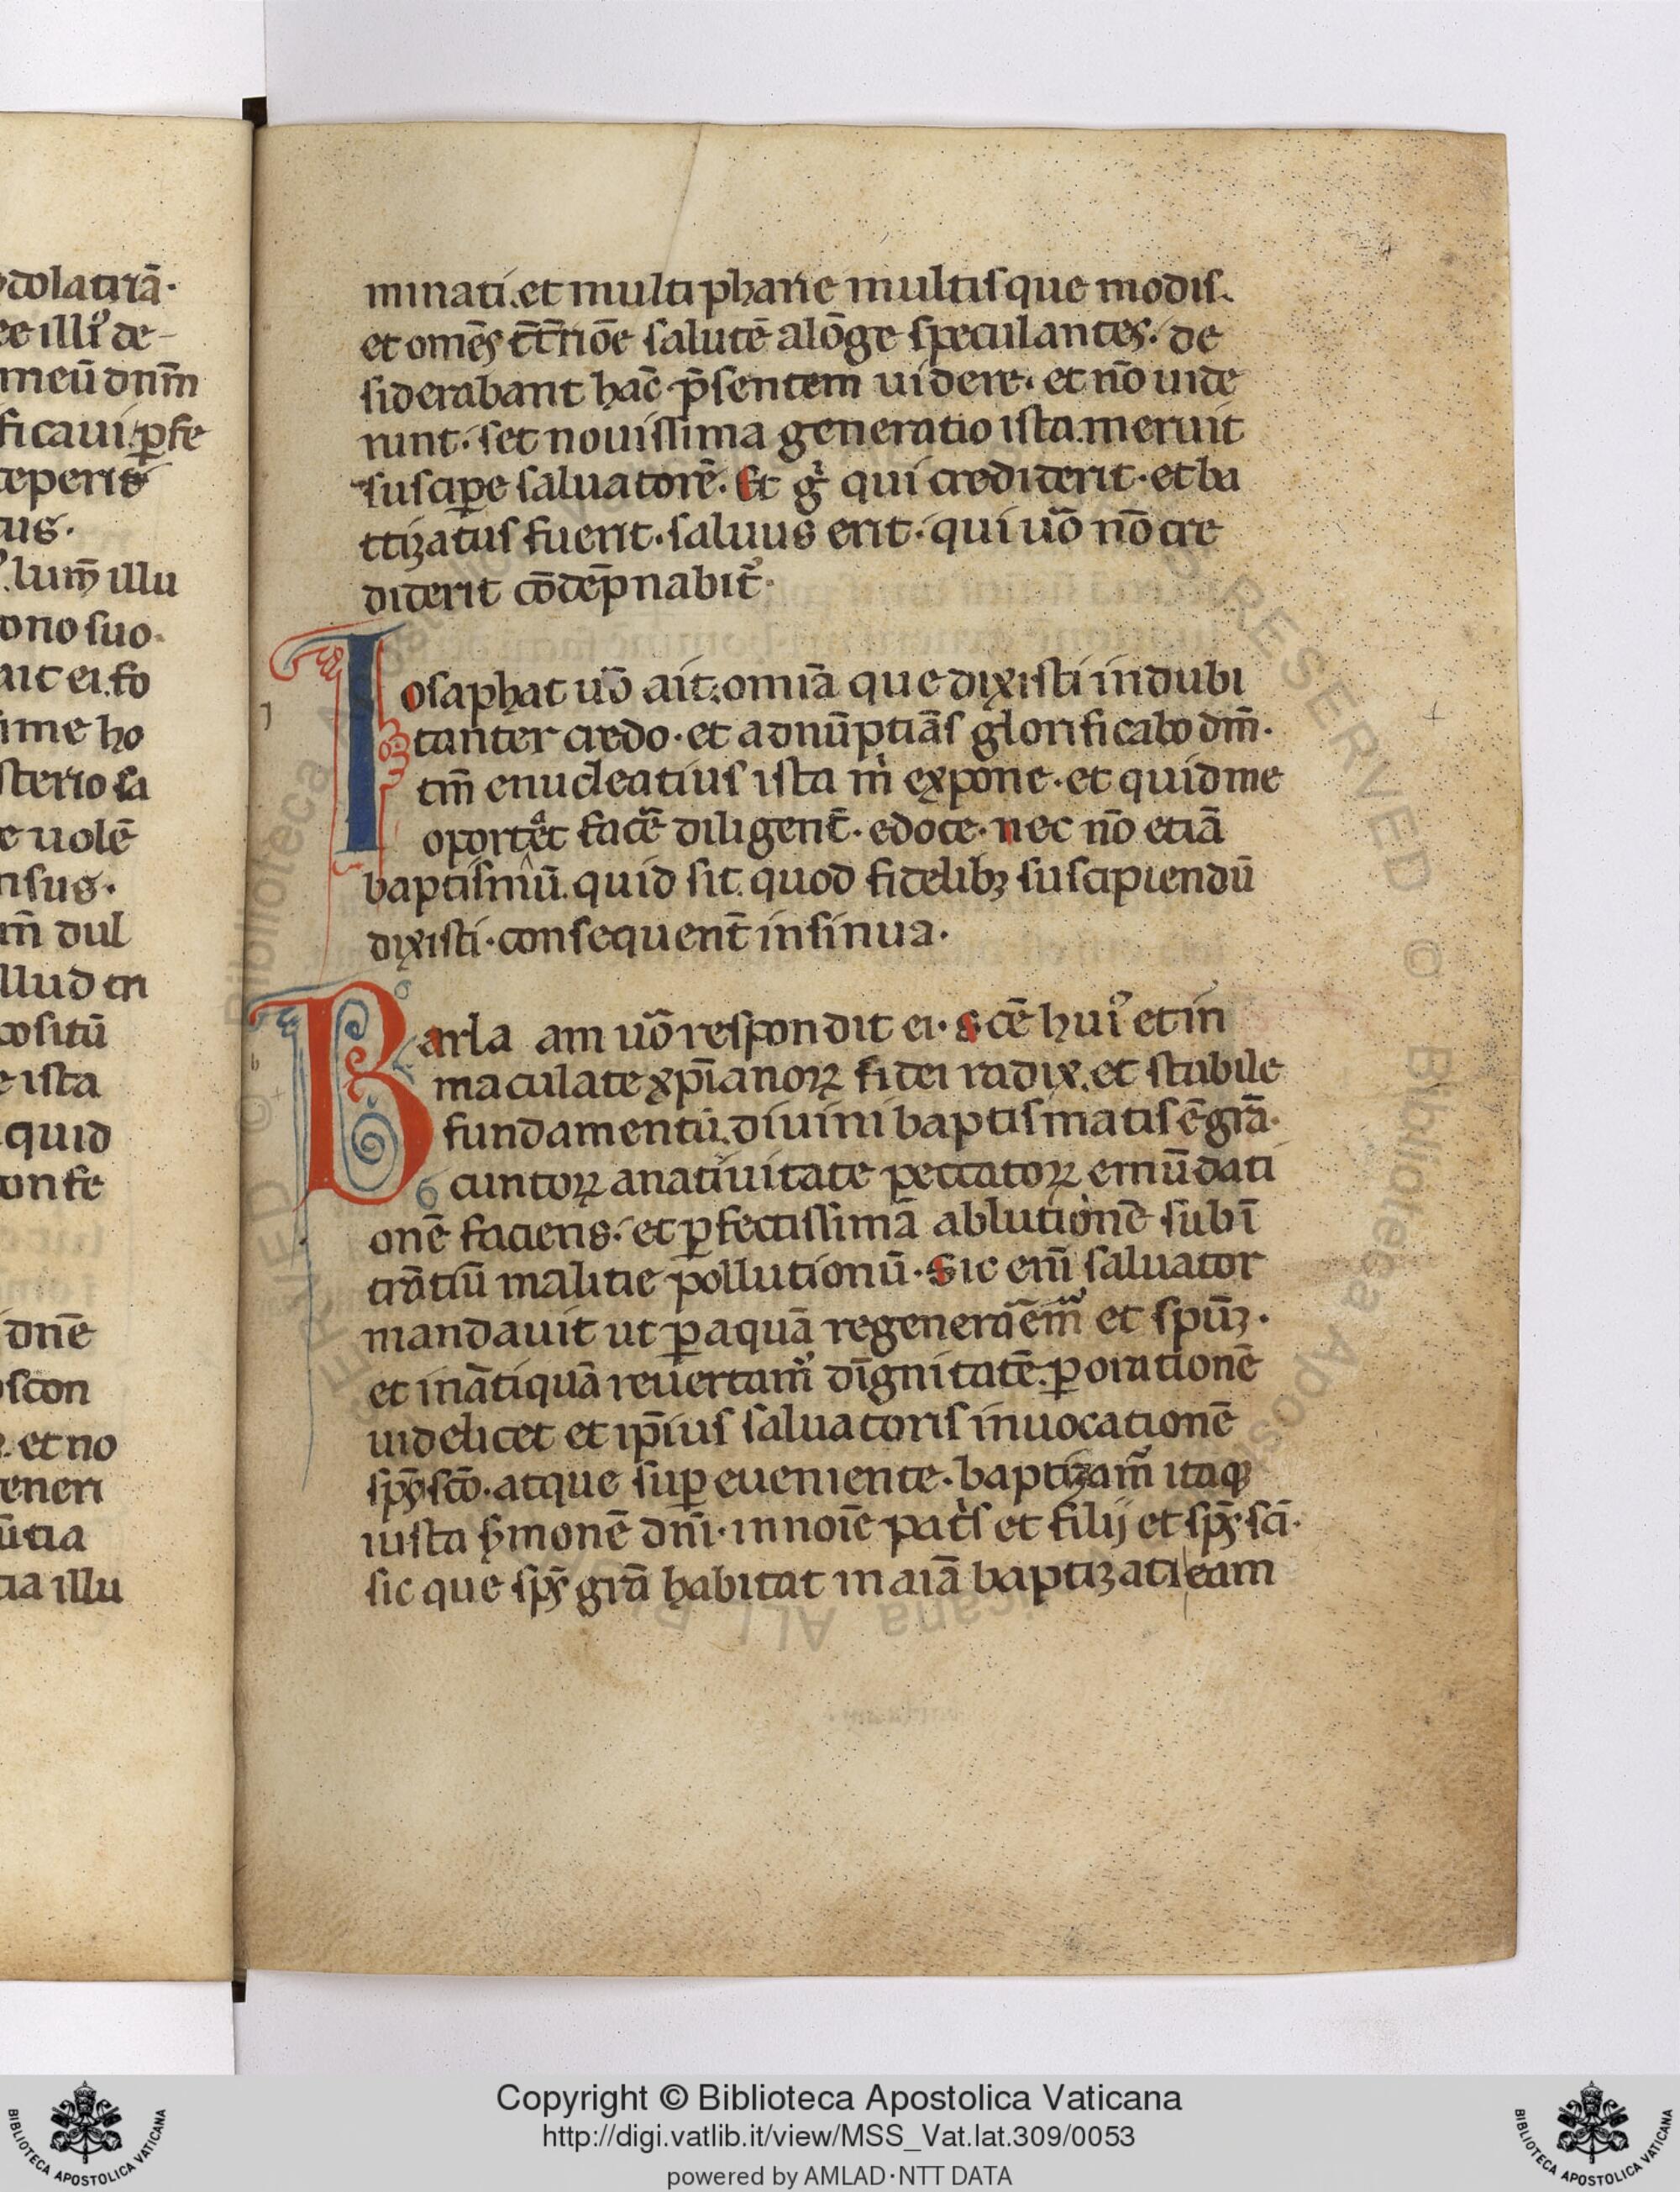 dolatrā·
ee illi᷒ de-
meū dnm̄
ficaui.ꝑfe
ceperis
tus·
lum̄ illu
ono suo·
ait ei.fo
ime ho
sterio sa
e uolē
nsus·
m̄ dul
llud in
positū
e ista
quid
onfe
dnē
oscon
et no
eneri
ūtia
tia illu
minati.et multiphar̄ie multisque modis.
et om̄es salutē alōge speculantes·de
siderabant hāc p̄sentem uidere·et nō uide
runt·set nouissima generatio ista.meruit
susciꝑe saluatorē·Et gͥ qui crediderit·et ba
ttizatus fuerit·saluus erit·qui uō nō cre
diderit cōdēpnabit᷒·
Iosaphat uō ait:omīa que dixisti indubi
tanter credo·et adnūptiās glorificabo dm̄·
tm̄ enucleatius ista m̍ expone·et quid me
oportet facē diligent̄·edoce·nec nō etiā
baptismū.quid sit.quod fidelibꝫ suscipiendū
dixisti·consequent̄ insinua·
Barla am uō respondit ei·scē hui᷒ et in
maculate xp̄ianoꝝ fidei radix.et stabile
fundamentū.diuini baptismatis ē gr̄a·
cuntoꝝ a natiuitate peccatoꝝ emūdati
onē faciens·et ꝑfectissimā ablutionē subī
trātiū malitie pollutionū·Sic enī saluator
mandauit ut ꝑ aquā regenerēm᷒ et spūꝫ·
et in ātiquā reuertam᷒ dīgnitatē.ꝑ orationē
uidelicet et ip̄ius saluatoris inuocationē
sp̄ꝯ scō·atque suꝑueniente·baptizam᷒ itaqꝫ
iusta ẜmonē dn̄i·in noīe pat̍s et filij et sp̄ꝯ·sc̄i·
sic que sp̄ꝯ gr̄a habitat in aīa baptizati eam
Copyright © Biblioteca Apostolica Vaticana
http://digi.vatlib.it/view/MSS_Vat.lat.309/0053
powered by AMLAD·NTT DATA
BIBLIOTECA APOSTOLICA VATICANA
BIBLIOTECA APOSTOLICA VATICANA